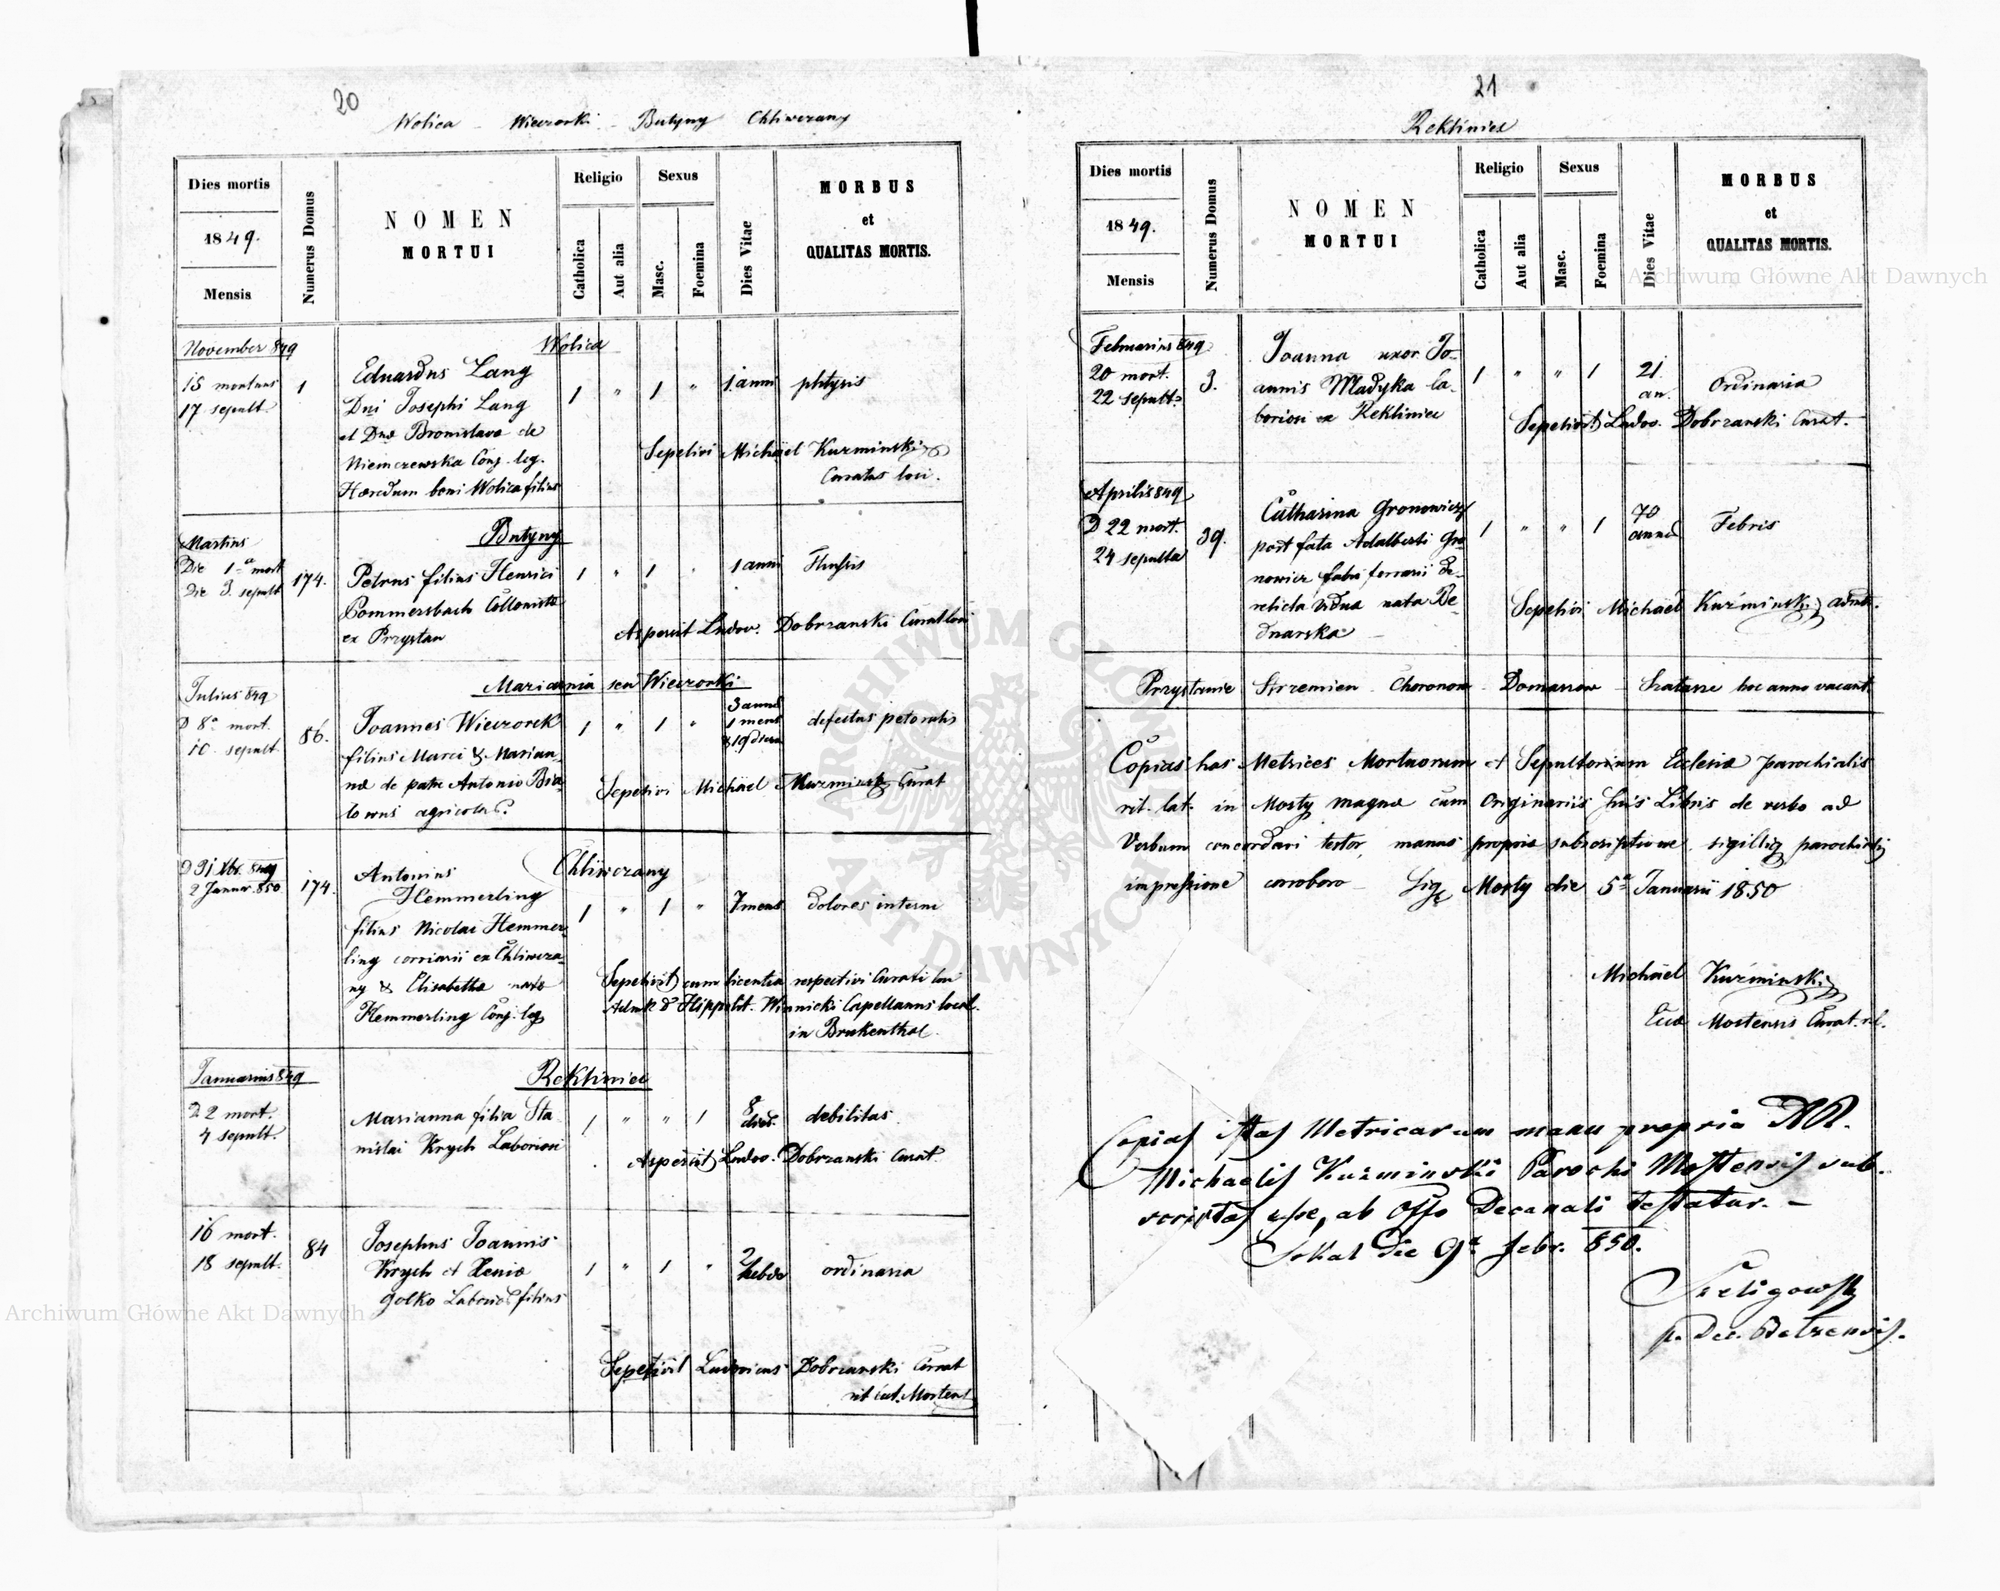 20
Wolica - Wieczorki - Butyny Chliwczany
Dies mortis
1849.
Mensis
Numerus Domus
NOMEN
MORTUI
Religio
Catholica
Aut alia
Sexus
Masc.
Foemina
Dies Vitae
MORBUS
et
QUALITAS MORTIS.
Wolica
November 849
15 mortuus
17 sepult.
1
Eduardus Lang
Dni Josephi Lang
et Dnae Bronislavae de
Niemczewska Conj. leg.
Haeredum boni Wolica filius
1 " 1 " 1 anni phtysis
Sepelivi Michael Kuzminski
Curatus loci.
Butyny
Martius
Die 1a mort
Die 3. sepult
174.
Petrus filius Henrici
Pommersbach Collonistae
ex Przystan
1 " 1 " 1 anni
Aspersit Ludov. Dobrzanski Curat loci
Mariaunia seu Wieczorki
Julius 849
D 8a mort.
10. sepult
86.
Joannes Wieczorek
filius Marci & Marian-
nae de patre Antonio
agricola
1 " 1 "
3 anni
1 mens
& 19 dierum
defectus petoralis
Sepelivi Michael Kuzminski Curat
Chliwczany
D 31 Xbr. 849
2 Januar 850
174.
Antonius
Hemmerling
filius Nicolai Hemmer-
ling corriarii ex Chliwcza-
ny & Elisabetha nata
Hemmerling Conj. leg
1 " 1 " 7 mens dolores interni
Sepelivit cum licentia respectivi Curati loci
Hippolit. Winnicki Capellanus local.
in Brukenthal.
Rekliniec
Januarius 849
D 2 mort.
4 sepult.
Marianna filia Sta-
nislai Krych Laboriosi
1 " " 1
8
dies.
debilitas
Aspersit Ludov. Dobrzanski Curat.
16 mort.
18 sepult.
84
Josephus Joannis
Krych et Xenia
Golko Laborios filius
1 " 1 "
2
hebdo
ordinaria
Sepelivit Ludovicus Dobrzanski Curat
rit lat. Mostens
21
Rekliniec
Dies mortis
1849.
Mensis
Numerus Domus
NOMEN
MORTUI
Religio
Catholica
Aut alia
Sexus
Masc.
Foemina
Dies Vitae
MORBUS
et
QUALITAS MORTIS.
Februarius 849
20 mort.
22 sepult.
3.
Joanna uxor Jo-
annis Madyka la-
boriosi ex Rekliniec
1 " " 1
21
an.
Ordinaria
Sepelivit Ludov. Dobrzanski Curat.
Aprilis 849
D 22 mort.
24 sepulta
39.
Catharina Gronowicz
post fata Adalberti Gro-
nowicz fabri ferrarii de-
relicta vidua nata Be-
dnarska
1 " " 1
70
anno
Febris
Sepelivi Michael Kuźminski admi.
Przystanie Strzemien Choronow Domaszow Szatasze hoc anno vacant.
Copias has Metrices Mortuorum et Sepultorum Ecclesiae parochialis
rit. lat. in Mosty magna cum Originariis suis Libris de verbo ad
Verbum concordari testor, manus propria subscriptione, sigilliq parochialis
impressione corroboro Sig Mosty die 5a Januarii 1850
Michael Kuźminski
Eccl Mostensis Curat. r.l.
Copias istas Metricarum manu propria AR.
Michaelis Kuźminski Parochi Mostensis sub-
scriptas esse, ab Offo Decanali testatur. -
Sokal die 9a febr. 850.
Szeligowski
p. Dec. Belzensis.
Archiwum Główne Akt Dawnych
Archiwum Główne Akt Dawnych
ARCHIWUM GŁÓWNE AKT DAWNYCH